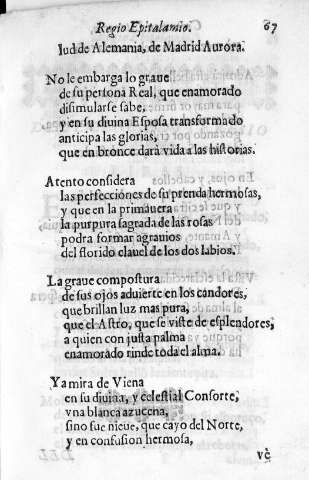 Regio Epitalamio. 67
lud de Alemania, de Madrid Aurora.
No le embarga lo graue
de su persona Real, que enamorado
disimularse sabe,
y en su diuina Esposa transformado
anticipa las glorias,
que en bronce darà vida a las historias.
Atento considera
las perfecciones de su prenda hermosas,
y que en la primauera
la purpura sagrada de las rosas
podra formar agrauios
del florido clauel de los dos labios.
La graue compostura
de sus ojos aduierte en los candores,
que brillan luz mas pura,
que el Astro, que se viste de esplendores,
a quien con justa palma
enamorado rinde toda el alma.
Ya mira de Viena
en su diuina, y celestial Consorte,
vna blanca azucena,
sino fue nieue, que cayo del Norte,
y en confusion hermosa,
vè